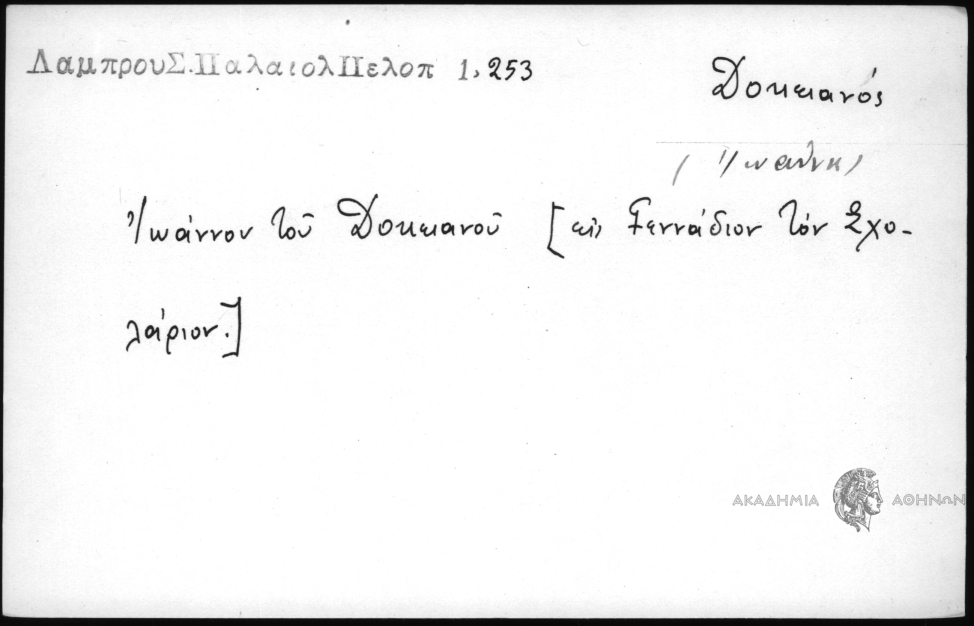 ΛαμπρουΣ.ΠαλαιολΠελοπ 1, 253
Δοκειανός
(Ἰωάννης)
Ἰωάννου τοῦ Δοκειανοῦ [εἰς Γεννάδιον τὸν Σχο-
λάριον.]
ΑΚΑΔΗΜΙΑ ΑΘΗΝΩΝ